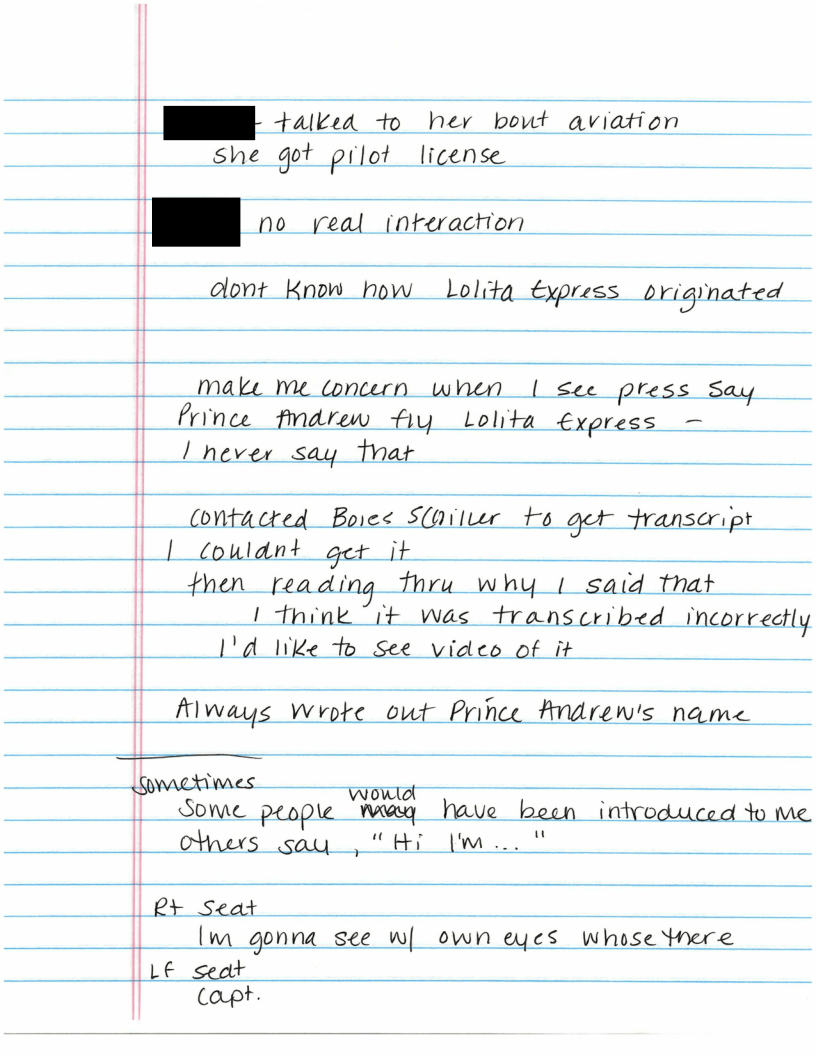 - talked to her bout aviation
she got pilot license
no real interaction
dont know how Lolita Express originated
make me concern when I see press say
Prince Andrew fly Lolita Express -
I never say that
contacted Boies Schiller to get transcript
I couldnt get it
then reading thru why I said that
I think it was transcribed incorrectly
I'd like to see video of it
Always wrote out Prince Andrew's name
sometimes
would
some people may have been introduced to me
others say, "Hi I'm... "
Rt seat
Im gonna see w/ own eyes whose there
Lf seat
Capt.